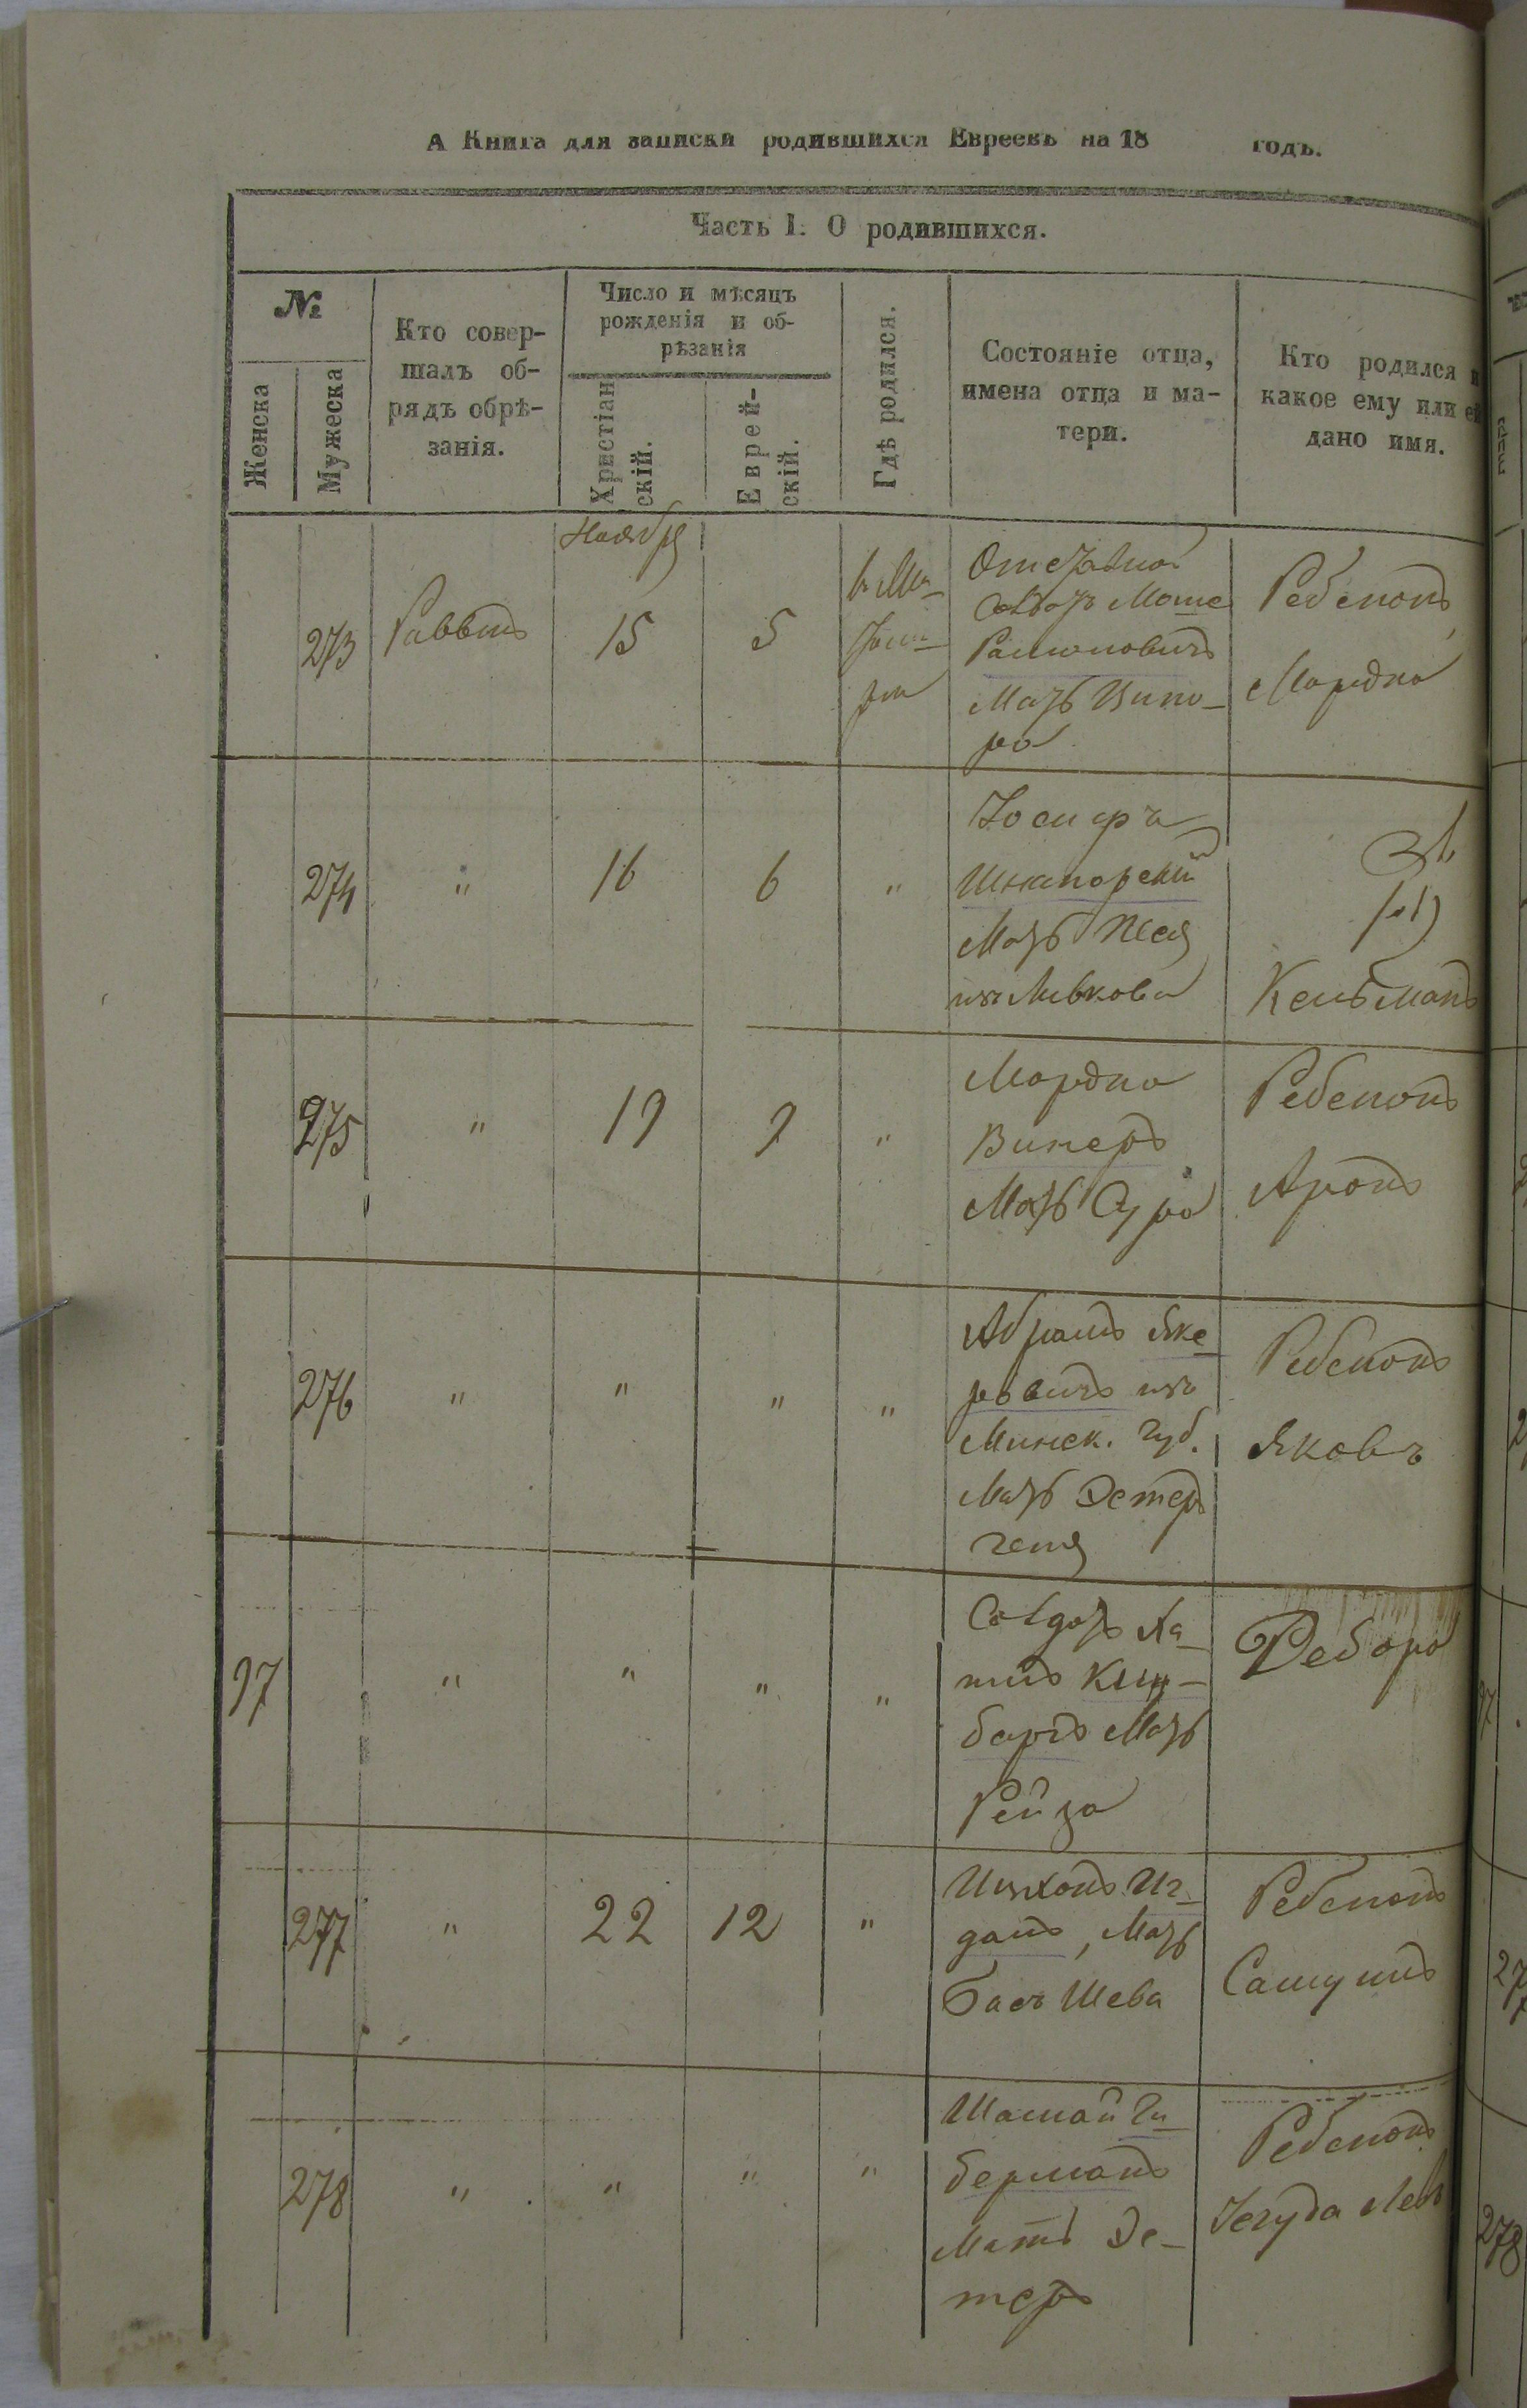 А Книга для записки родившихся Евреевъ на 18 годъ.
Часть I. О родившихся.
№
Женска
Мужеска
Кто совер-
шалъ об-
рядъ обрѣ-
занія.
Число и мѣсяцъ
рожденія и об-
рѣзанія
Христіан
скій.
Еврей-
скій.
Гдѣ родился.
Состояніе отца,
имена отца и ма-
тери.
Кто родился и
какое ему или ей
дано имя.
Ноября
273
Раввинъ
15
5
Отставной
Солдатъ Моше
Мать Ципо-
ра
Ребенокъ
Мордко
274
"
16
6
"
Іосифъ
Шкапорскій
Мать Песя
изъ Любкова
Кельманъ
275
"
19
9
"
Мордко
Винеръ
Мать Сура
Ребенокъ
Аронъ
276
"
"
"
"
Абрамъ Яке
ровичъ изъ
Минск. Губ.
Мать Эстеръ
геня
Ребенокъ
Яковъ
97
"
"
"
"
Солдатъ Ха
имъ
бергъ Мать
Рейза
Дебора
277
"
22
12
"
Ицхокъ Иг
данъ, Мать
Бась Шева
Ребенокъ
Самуилъ
278
"
"
"
"
Шамай Ги
берманъ
Мать Эс-
теръ
Ребенокъ
Іегуда Лейб
97
278